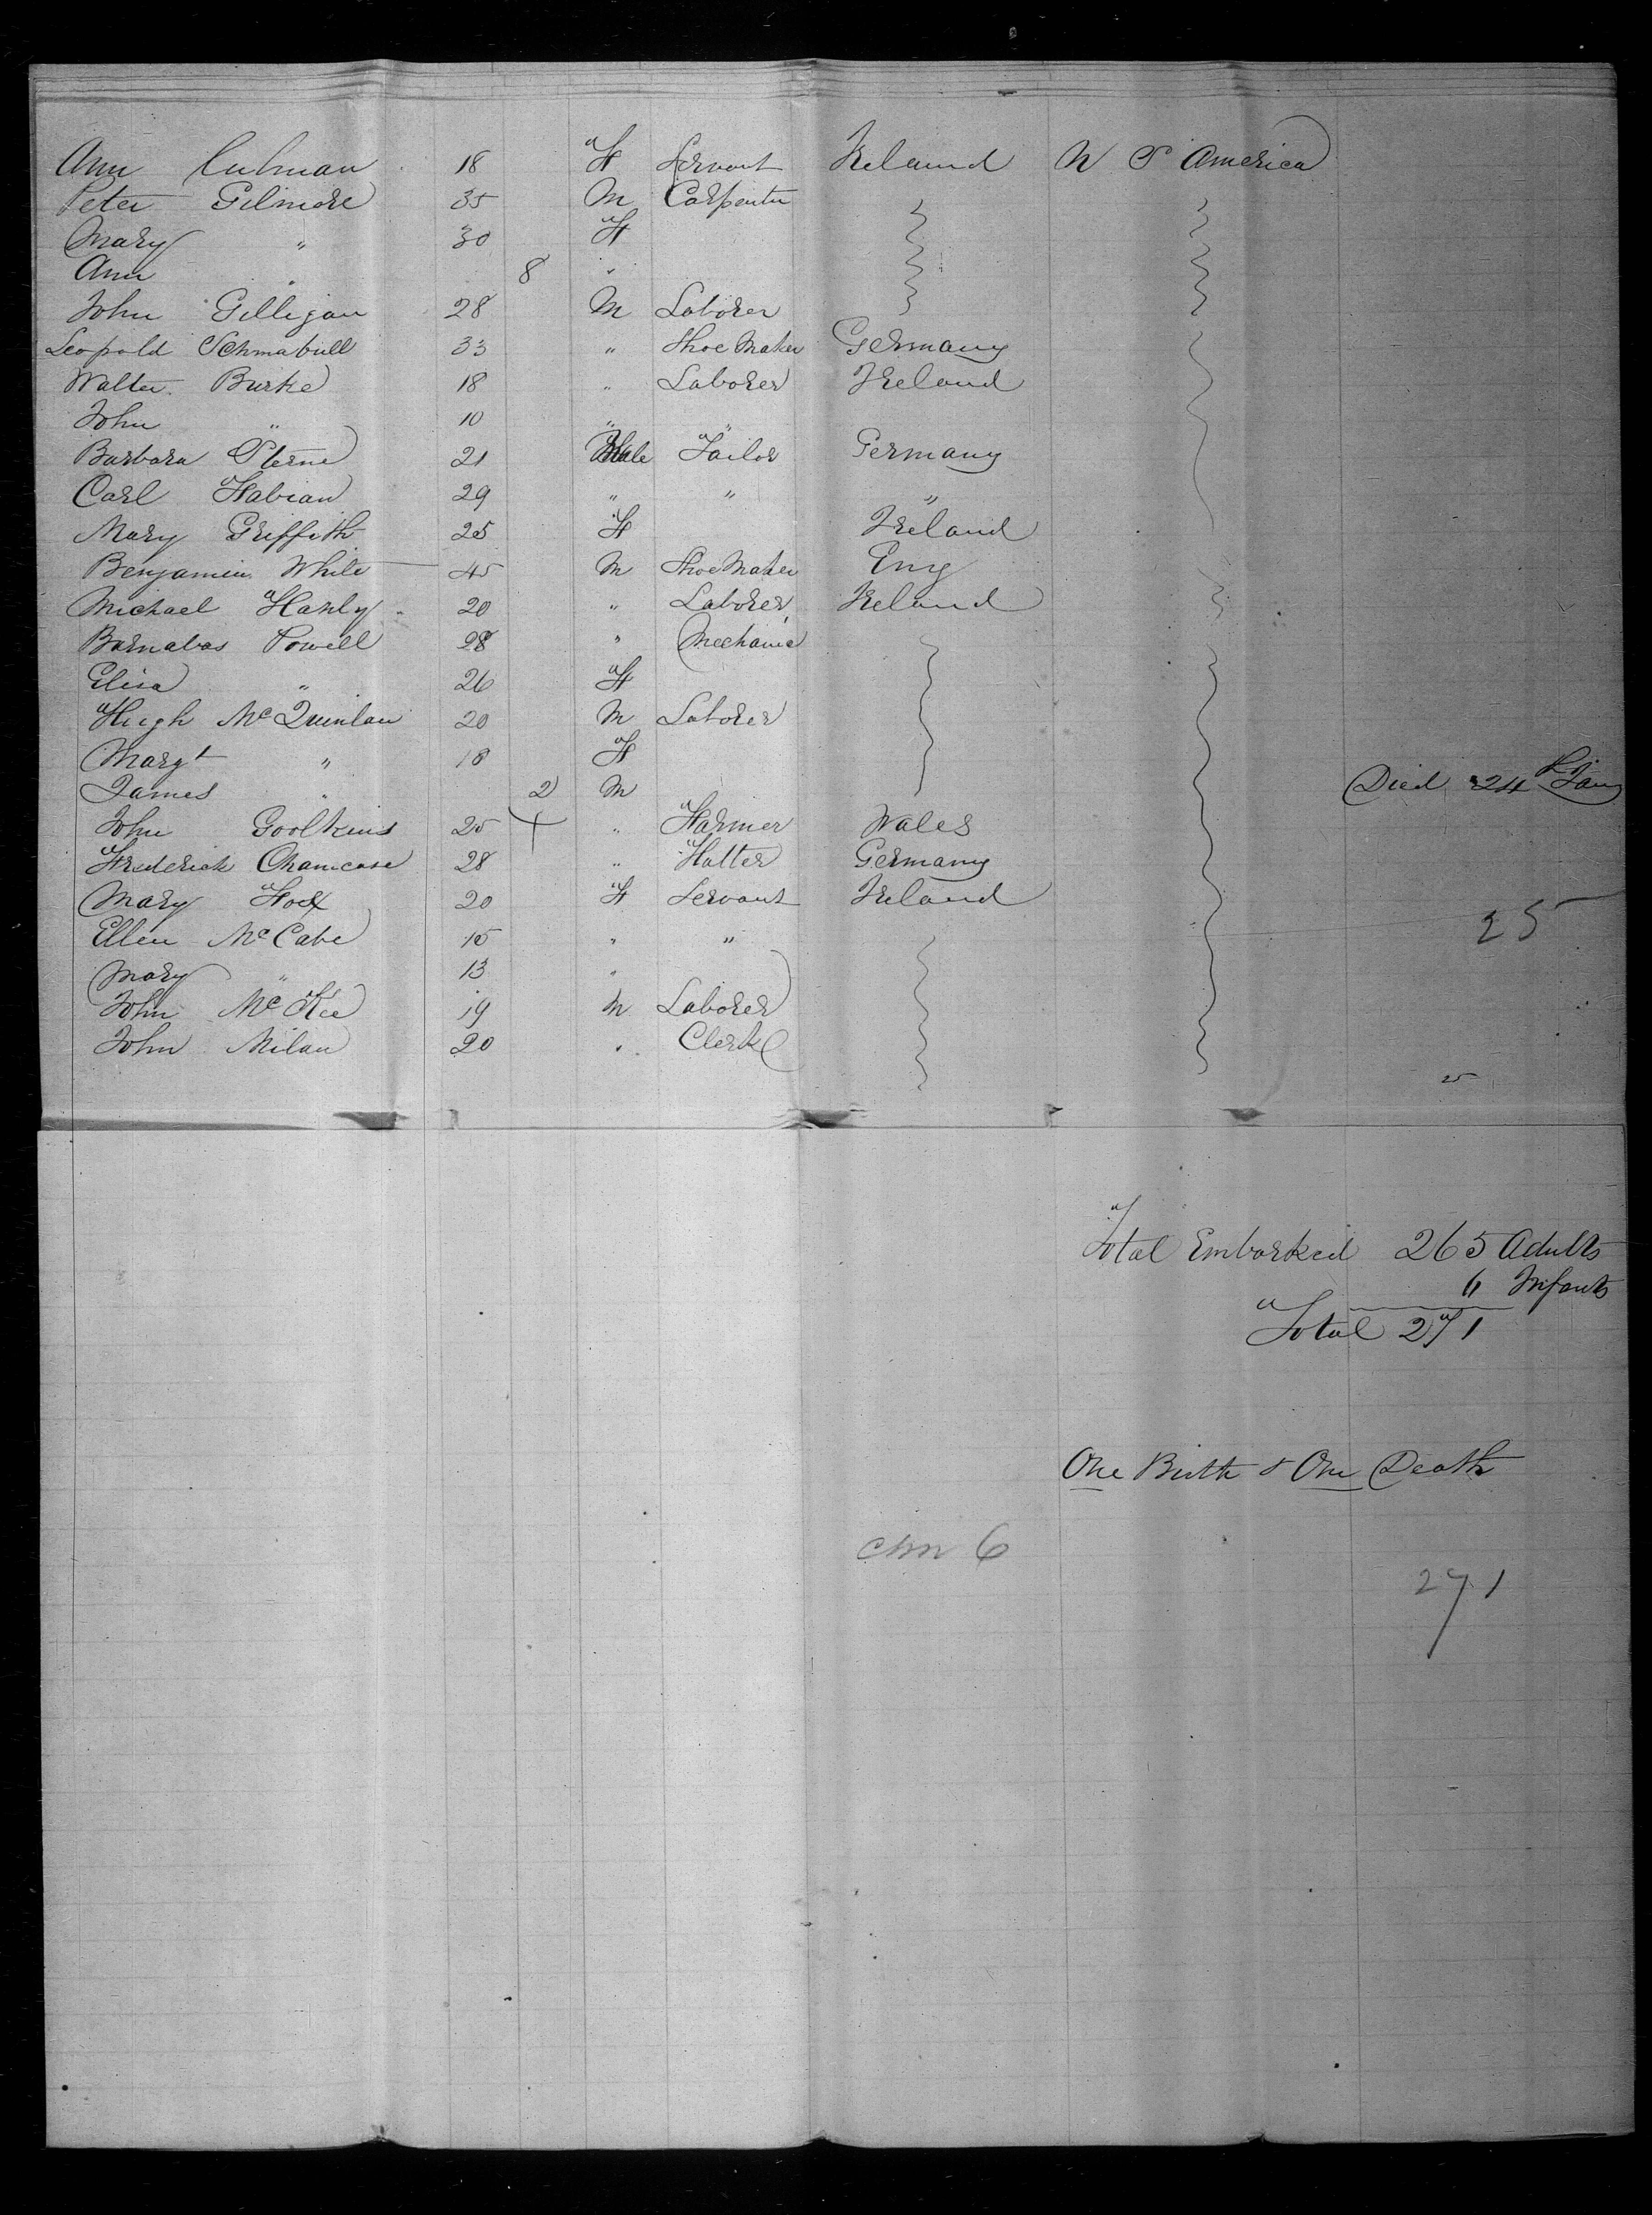 Ann Culman 18 F Servant Ireland U S America
Peter Gilmore 35 M Carpenter
Mary " 30 F
Ann " 8 "
John Gilligan 28 M Laborer
Leopold Schmabull 33 " Shoe Maker Germany
Walter Burke 18 " Laborer Ireland
John " 10 " "
Barbara Sterne 21 Male Tailor Germany
Carl Fabian 29 " " "
Mary Griffith 25 F Ireland
Benjamin White 45 M Shoe Maker Eng
Michael Hanly 20 " Laborer Ireland
Barnabas Powell 28 " Mechanic
Elisa " 26 F
Hugh McQuinlan 20 M Laborer
Margt " 18 F
James " 2 M Died 24th Jany
John Goolkins 25 " Farmer Wales
Frederick Chamcase 28 " Hatter Germany
Mary Fox 20 F Servant Ireland
25
Ellen McCabe 15 " "
Mary " 13 "
John McKee 19 M Laborer
John Milan 20 " Clerk
25
Total Embarked 265 Adults
6 Infants
Total 271
One Birth & One Death
chn 6
271